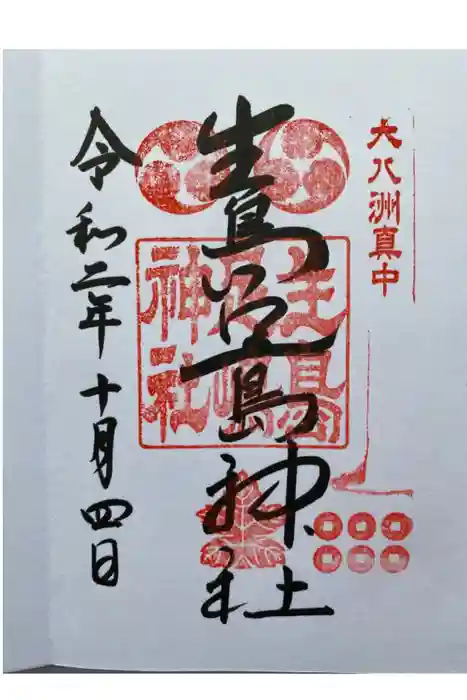 大八洲真中
生島足島神社
生島
足嶋
神社
令和二年 十月四日